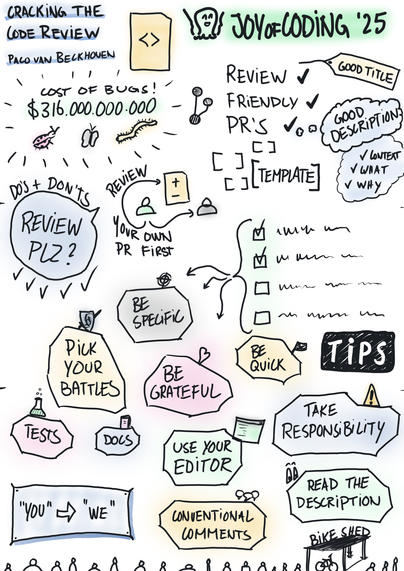 CRACKING THE
CODE REVIEW
PACO VAN BECKHOVEN
<>
JOY OF CODING '25
COST OF BUGS!
$316.000.000.000
REVIEW ✓
FRIENDLY ✓
PR'S ✓
GOOD TITLE
GOOD
DESCRIPTION
✓ CONTEXT
✓ WHAT
✓ WHY
[ ]
[ ]
[ ]
[TEMPLATE]
DO'S + DON'TS
REVIEW
PLZ?
REVIEW
+
-
YOUR OWN
PR FIRST
BE
SPECIFIC
TIPS
PICK
YOUR
BATTLES
BE
GRATEFUL
BE
QUICK
TESTS
DOCS
USE YOUR
EDITOR
TAKE
RESPONSIBILITY
!
READ THE
DESCRIPTION
"YOU" ⇨ "WE"
CONVENTIONAL
COMMENTS
BIKE SHED